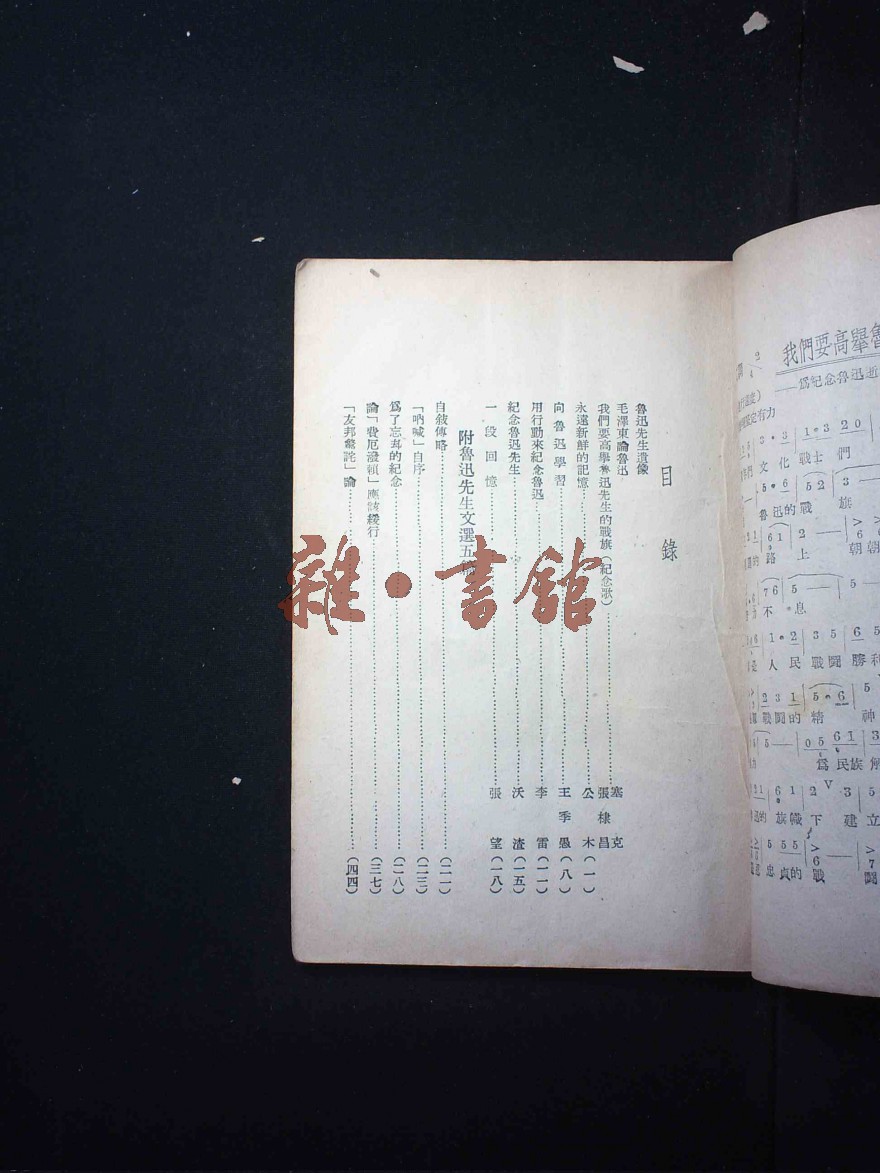 目錄
魯迅先生遺像
毛澤東論魯迅
我們要高舉魯迅先生的戰旗（紀念歌）……塞克 張棣昌
永遠新鮮的記憶……公木（一）
向魯迅學習……王季愚（八）
用行動來紀念魯迅……李雷（一一）
紀念魯迅先生……沃渣（一五）
一段回憶……張望（一八）
附魯迅先生文選五
自敍傳略……（二一）
「吶喊」自序……（二三）
爲了忘却的紀念……（二八）
論「費厄潑賴」應該緩行……（三七）
「友邦驚詫」論……（四四）
雜·書館
我們要高舉魯
——爲紀念魯迅逝
定有力
文化 戰士們
魯迅的戰 旗
路上 朝朝
不息
人民戰鬪勝利
戰鬪的精 神
爲民族解
的旗幟下建立
忠貞的戰 鬪